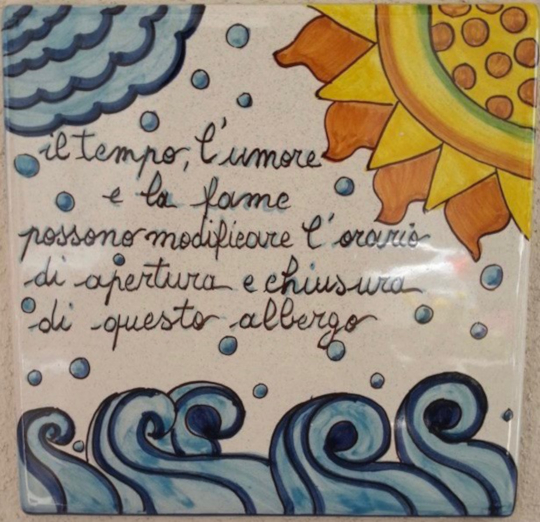 il tempo, l'umore
e la fame
possono modificare l'orario
di apertura e chiusura
di questo albergo